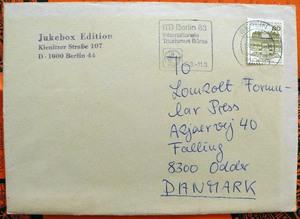 Jukebox Edition
Kienitzer Straße 107
D-1000 Berlin 44
ITB Berlin 83
Internationale
Tourismus Börse
-11.3.
80
To
Lomholt Formu-
lar Press
Asjaervej 40
Falling
8300 Odder
DANMARK